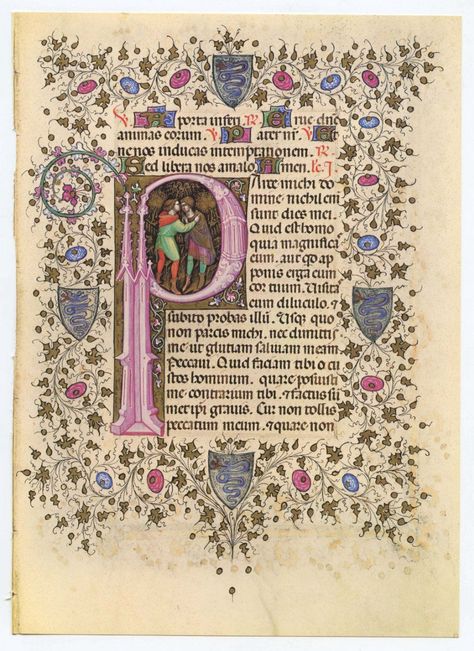 V A porta inferi R Erue dne
animas eorum. V Pater nr. V Et
ne nos inducas intemptationem. R
Sed libera nos amalo Amen. lc. J.
Parce michi do
mine nichil eni
sunt dies mei.
Quid est homo
quia magnifica
eum. aut qd ap
ponis erga eum
cor tuum. Visitas
eum diluculo. &
subito probas illū. Usqꝫ quo
non parcis michi. nec dimittis
me ut glutiam salivam meam.
Peccavi. Quid faciam tibi o cu
stos hominum. quare posuisti
me contrarium tibi. & factus sū
met ipi gravis. Cur non tollis
peccatum meum. & quare non